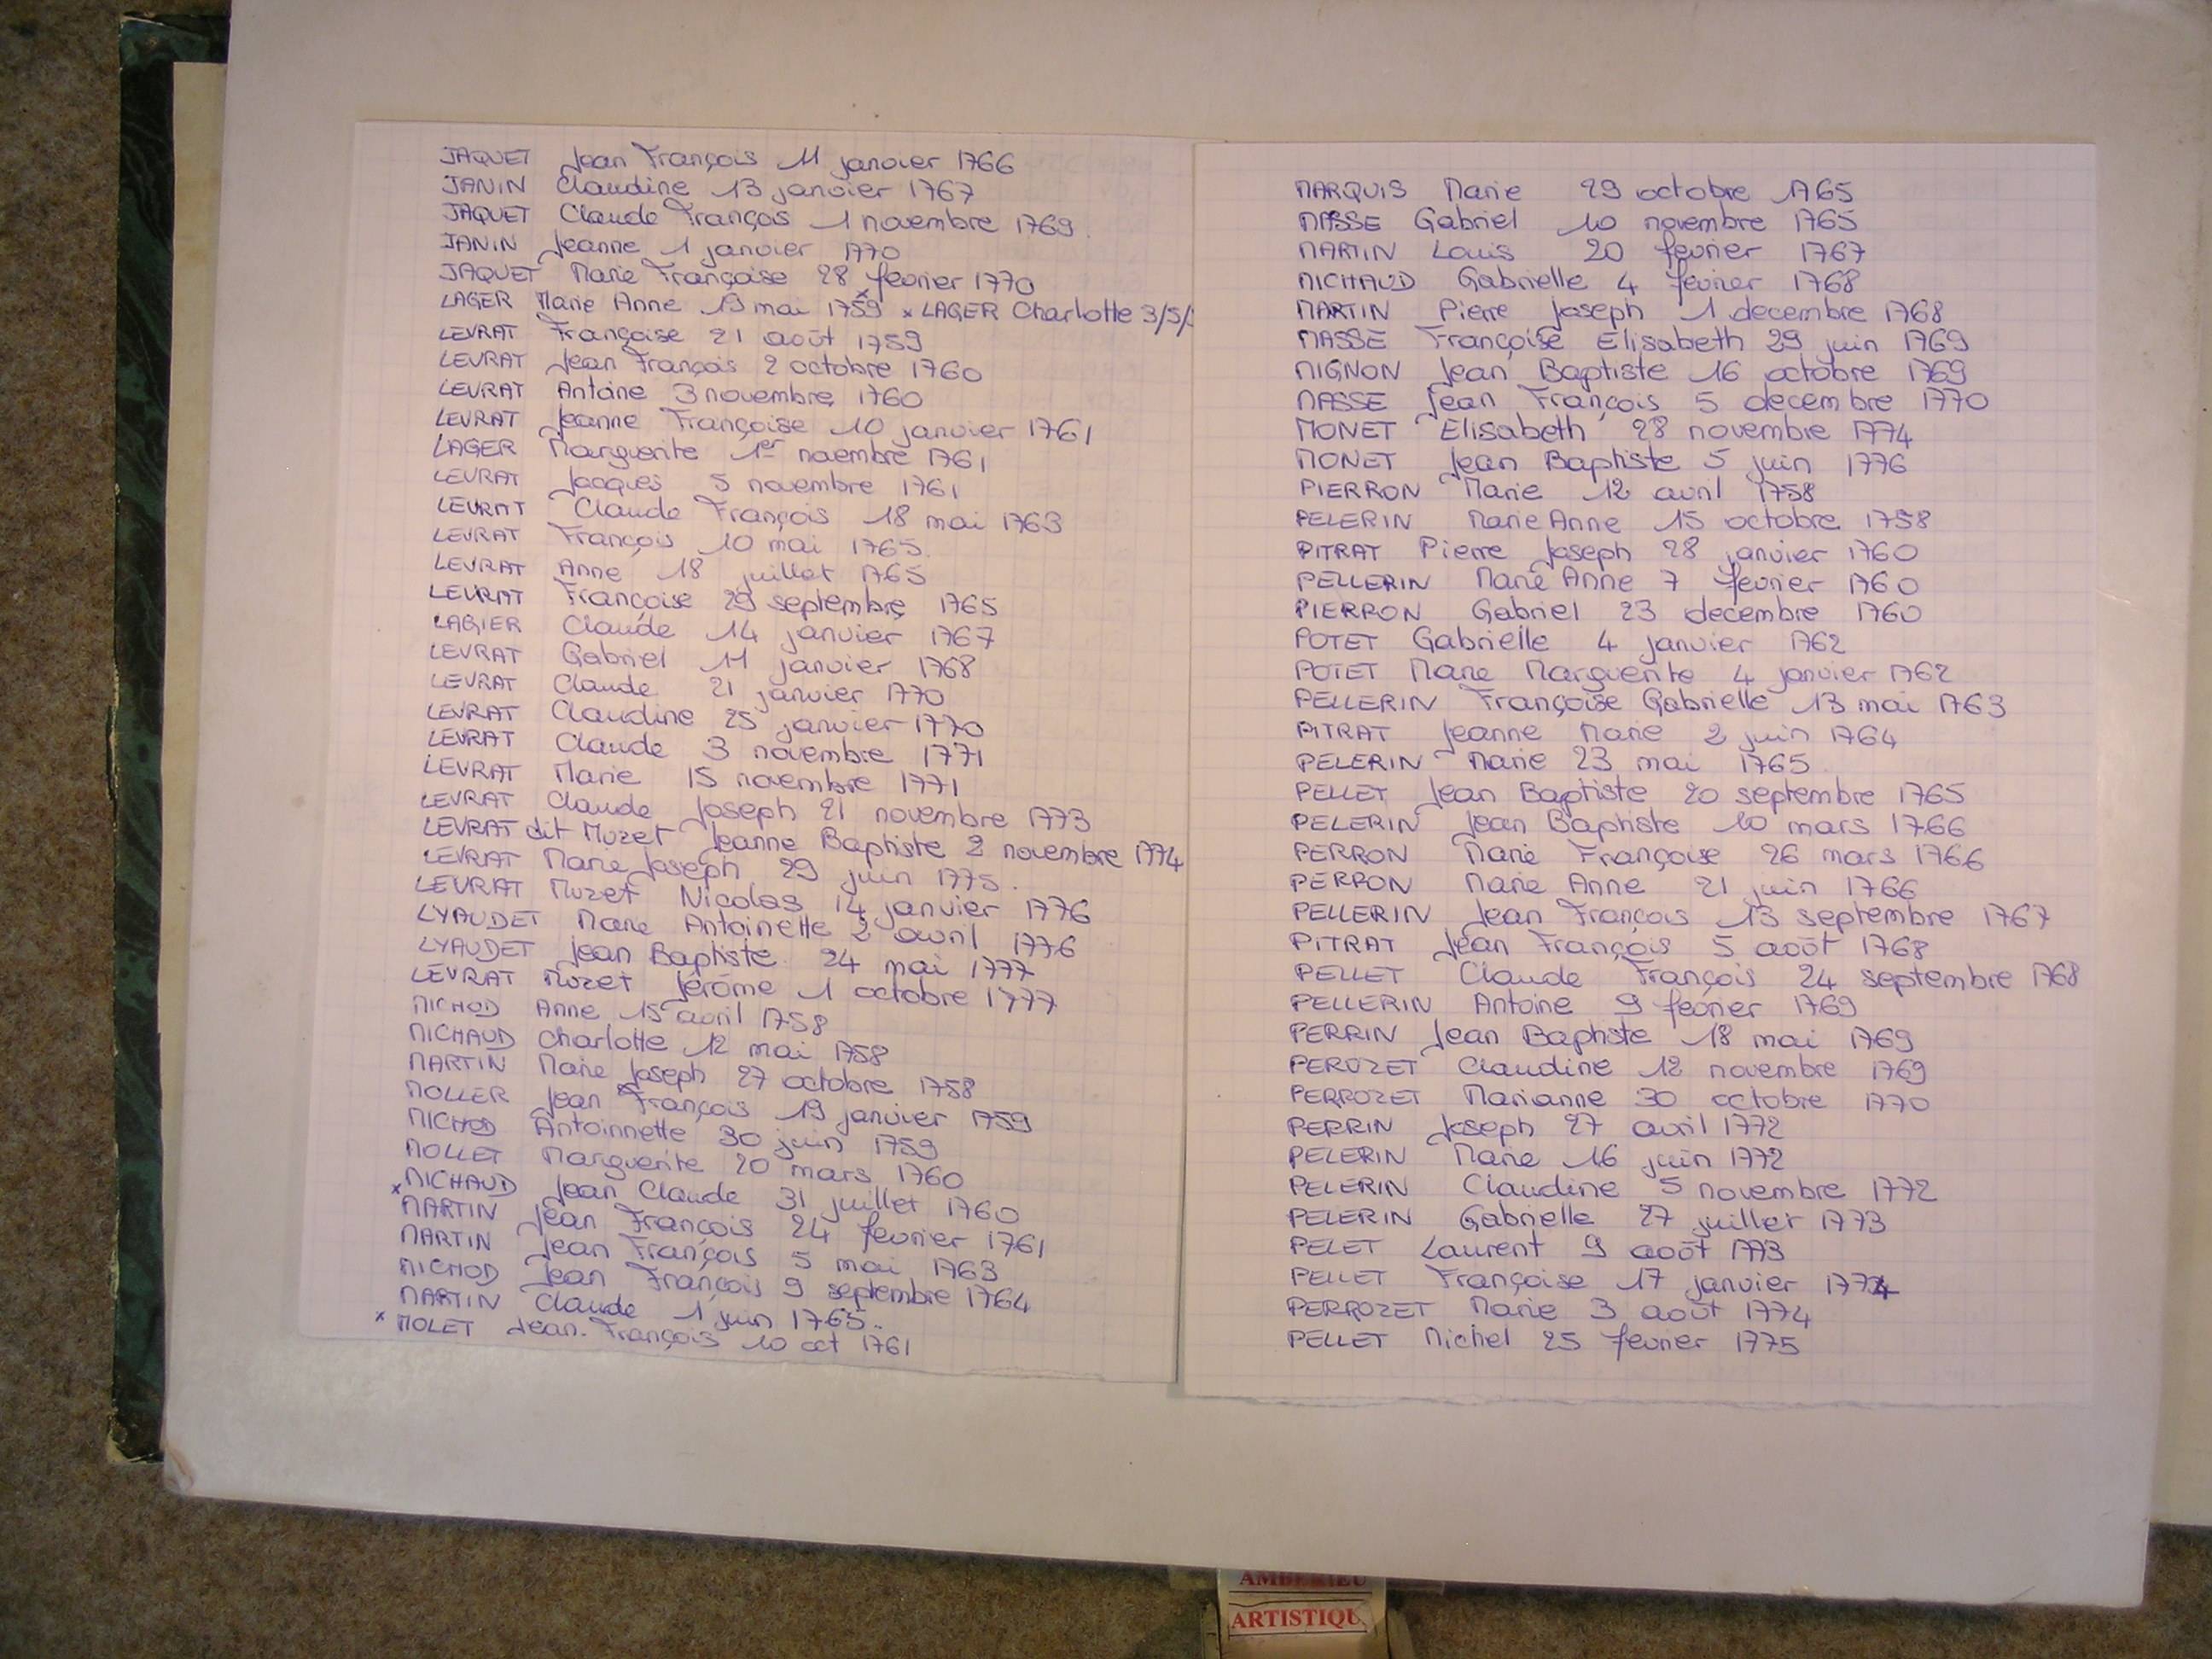 JAQUET Jean François 11 janvier 1766
JANIN Claudine 13 janvier 1767
JAQUET Claude François 1 novembre 1769.
JANIN Jeanne 1 janvier 1770
JAQUET Marie Françoise 28 février 1770
LAGER Marie Anne 19 mai 1759 x LAGER Charlotte 3/5/
LEVRAT Françoise 21 août 1759
LEVRAT Jean François 2 octobre 1760
LEVRAT Antoine 3 novembre 1760
LEVRAT Jeanne Françoise 10 janvier 1761
LAGER Marguerite 1er novembre 1761
LEVRAT Jacques 5 novembre 1761
LEVRAT Claude François 18 mai 1763
LEVRAT François 10 mai 1765.
LEVRAT Anne 18 juillet 1765
LEVRAT Françoise 29 septembre 1765
LAGIER Claude 14 janvier 1767
LEVRAT Gabriel 11 janvier 1768
LEVRAT Claude 21 janvier 1770
LEVRAT Claudine 25 janvier 1770
LEVRAT Claude 3 novembre 1771
LEVRAT Marie 15 novembre 1771
LEVRAT Claude Joseph 21 novembre 1773
LEVRAT dit Muzet Jeanne Baptiste 2 novembre 1774
LEVRAT Marie Joseph 29 juin 1775.
LEVRAT Muzet Nicolas 14 janvier 1776
LYAUDET Marie Antoinette 2 avril 1776
LYAUDET Jean Baptiste 24 mai 1777
LEVRAT Muzet Jérôme 1 octobre 1777
MICHOD Anne 15 avril 1758
MICHAUD Charlotte 12 mai 1758
MARTIN Marie Joseph 27 octobre 1758
MOLLER Jean François 19 janvier 1759
MICHOD Antoinnette 30 juin 1759
MOLLET Marguerite 20 mars 1760
x MICHAUD Jean Claude 31 juillet 1760
MARTIN Jean François 24 fevrier 1761
MARTIN Jean François 5 mai 1763
MICHOD Jean François 9 septembre 1764
MARTIN Claude 1 juin 1765.
x MOLET Jean. François 10 oct 1761
MARQUIS Marie 29 octobre 1765
MASSE Gabriel 10 novembre 1765
MARTIN Louis 20 fevrier 1767
MICHAUD Gabrielle 4 fevrier 1768
MARTIN Pierre Joseph 1 decembre 1768
MASSE Françoise Elisabeth 29 juin 1769
MIGNON Jean Baptiste 16 octobre 1769
MASSE Jean François 5 decembre 1770
MONET Elisabeth 28 novembre 1774
MONET Jean Baptiste 5 juin 1776
PIERRON Marie 12 avril 1758
PELERIN Marie Anne 15 octobre 1758
PITRAT Pierre Joseph 28 janvier 1760
PELLERIN Marie Anne 7 fevrier 1760
PIERRON Gabriel 23 decembre 1760
POTET Gabrielle 4 janvier 1762
POTET Marie Marguerite 4 janvier 1762
PELLERIN Françoise Gabrielle 13 mai 1763
PITRAT Jeanne Marie 2 juin 1764
PELERIN Marie 23 mai 1765
PELLET Jean Baptiste 20 septembre 1765
PELERIN Jean Baptiste 10 mars 1766
PERRON Marie Françoise 26 mars 1766
PERRON Marie Anne 21 juin 1766
PELLERIN Jean François 13 septembre 1767
PITRAT Jean François 5 août 1768
PELLET Claude François 24 septembre 1768
PELLERIN Antoine 9 février 1769
PERRIN Jean Baptiste 18 mai 1769
PEROZET Claudine 12 novembre 1769
PERROZET Marianne 30 octobre 1770
PERRIN Joseph 27 avril 1772
PELERIN Marie 16 juin 1772
PELERIN Claudine 5 novembre 1772
PELERIN Gabrielle 27 juillet 1773
PELET Laurent 9 août 1773
PELLET Françoise 17 janvier 1774
PERROZET Marie 3 août 1774
PELLET Michel 25 fevrier 1775
AMBERIEU
ARTISTIQU